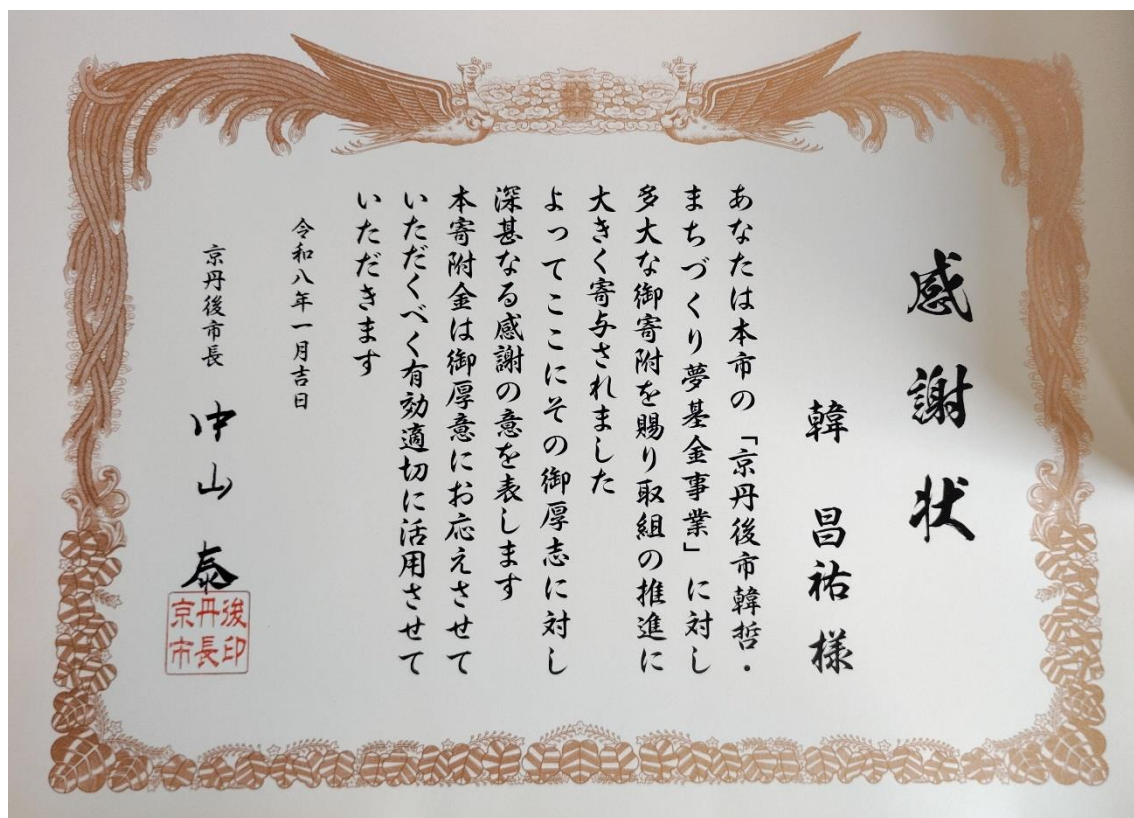 感謝状
韓 昌祐 様
あなたは本市の「京丹後市韓哲・
まちづくり夢基金事業」に対し
多大な御寄附を賜り取組の推進に
大きく寄与されました
よってここにその御厚志に対し
深甚なる感謝の意を表します
本寄附金は御厚意にお応えさせて
いただくべく有効適切に活用させて
いただきます
令和八年一月吉日
京丹後市長 中山 泰
京丹後
市長印